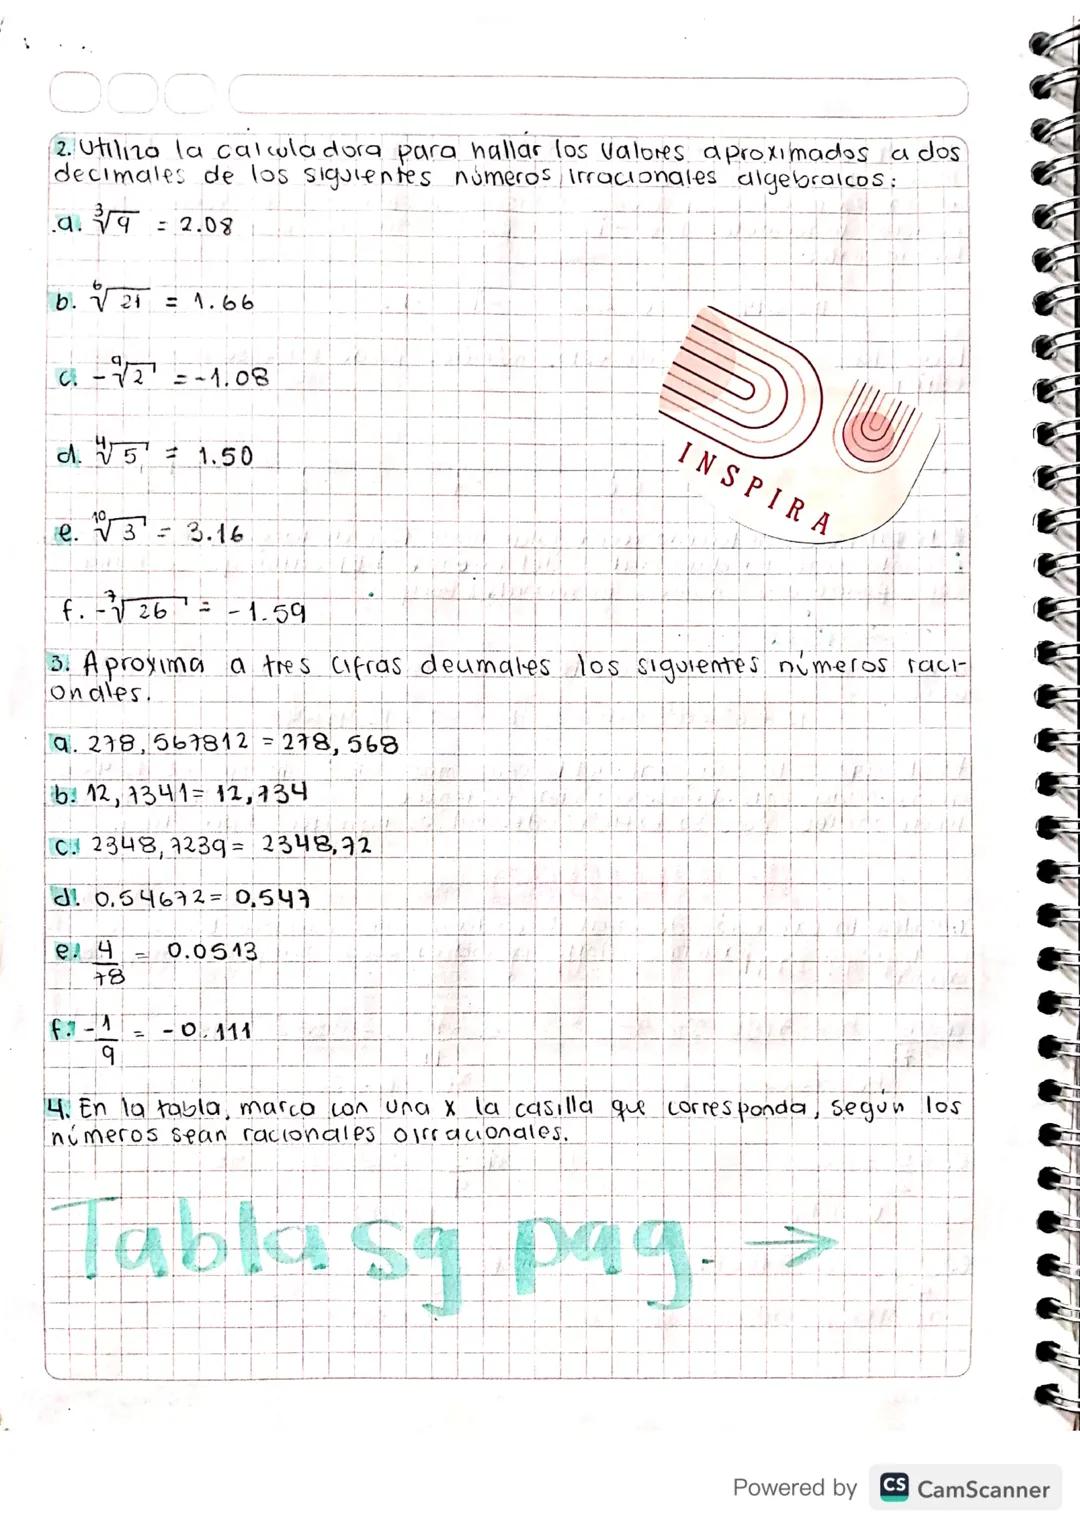 2. Utilizo la calculadora para hallar los valores aproximados a dos
decimales de los siguientes números irracionales algebraicos:
a. ∛9 = 2.08
b. ⁶√21 = 1.66
c. -⁹√2 = -1.08
d. ⁴√5 = 1.50
e. ¹⁰√3 = 3.16
f. -⁷√26 = -1.59
INSPIRA
3. Aproxima a tres cifras decimales los siguientes números raci-
onales.
a. 278,567812 = 278,568
b. 12,7341= 12,734
c. 2348,7239= 2348,72
d. 0,54672= 0,547
e. 4/78 = 0.0513
f. -1/9 = -0.111
4. En la tabla, marco con una x la casilla que corresponda, según los
números sean racionales o irracionales.
Tabla sg pag. →
Powered by CS CamScanner